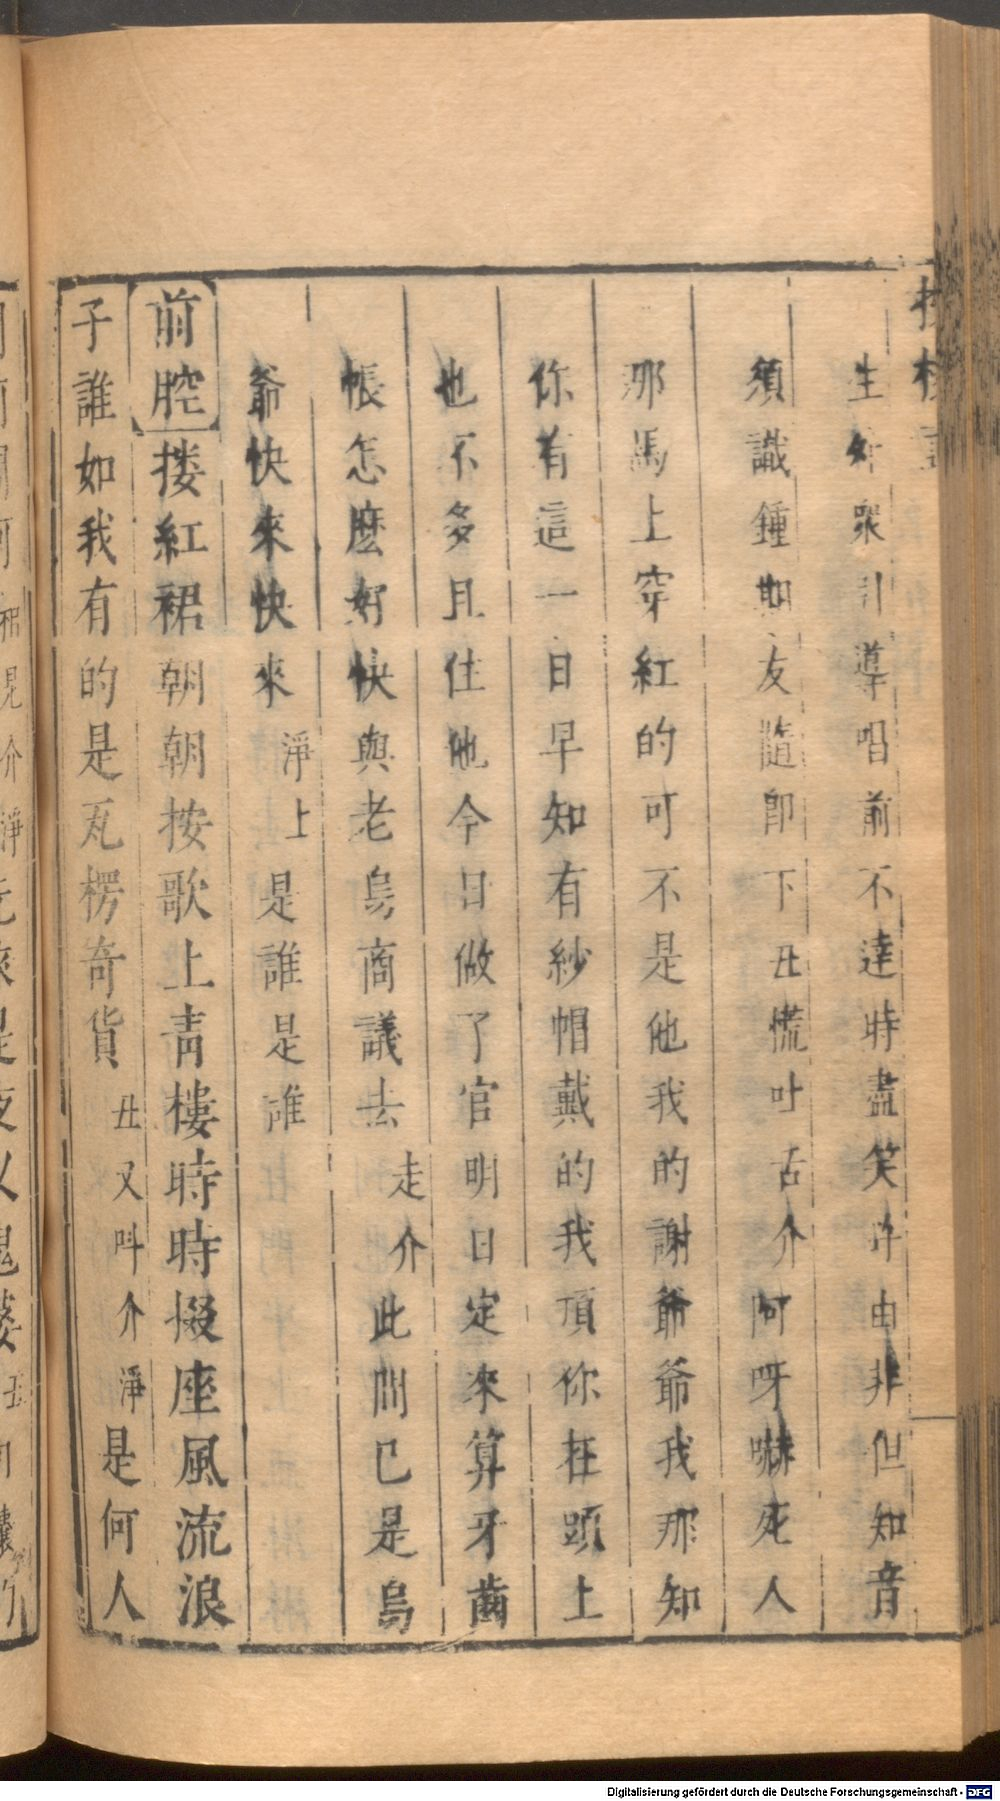 生外衆引導唱前不達時盡笑許由非但知音
須識鍾期友隨卽下丑慌吐舌介阿呀嚇死人
那馬上穿紅的可不是他我的謝爺爺我那知
你有這一日早知有紗帽戴的我頂你在頭上
也不多且住他今日做了官明日定來算牙齒
帳怎麽好快與老烏商議去走介此間已是烏
爺快來快來淨上是誰是誰
前腔摟紅裙朝朝按歌上靑樓時時掇座風流浪
子誰如我有的是瓦楞奇貨丑又呌介淨是何人
Digitalisierung gefördert durch die Deutsche Forschungsgemeinschaft - DFG